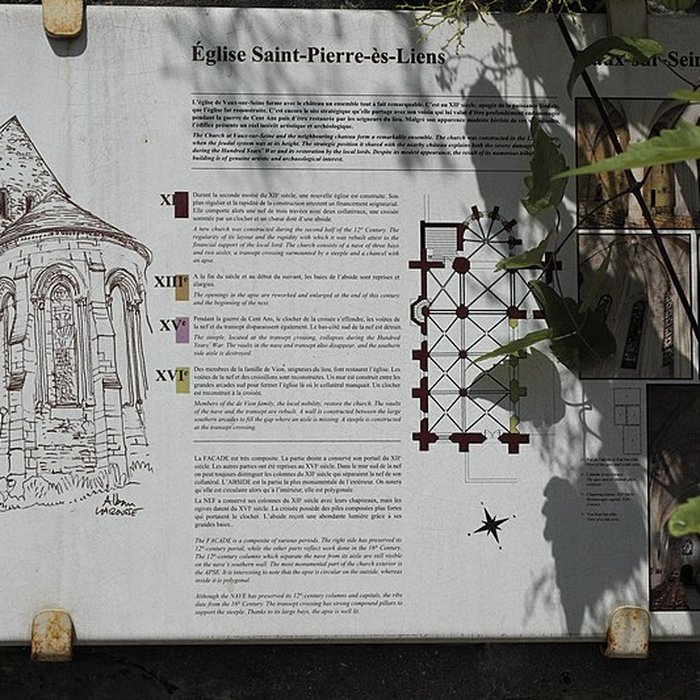 Église Saint-Pierre-ès-Liens
ux-sur-Sein
L'église de Vaux-sur-Seine forme avec le château un ensemble tout à fait remarquable. C'est au XIIe siècle, apogée de la puissance féodale,
que l'église fut reconstruite. C'est encore le site stratégique qu'elle partage avec son voisin qui lui valut d'être profondément endommagée
pendant la guerre de Cent Ans puis d'être restaurée par les seigneurs du lieu. Malgré son apparence modeste
l'édifice présente un réel intérêt artistique et archéologique.
The Church at Vaux-sur-Seine and the neighbouring chateau form a remarkable ensemble. The church was constructed in the
when the feudal system was at its height. The strategic position it shared with the nearby château explains both the severe
during the Hundred Years' War and its restoration by the local lords. Despite its modest appearance, the result of its numerous
building is of genuine artistic and archaeological interest.
XI
Durant la seconde moitié du XIIe siècle, une nouvelle église est construite. Son
plan régulier et la rapidité de la construction attestent un financement seigneurial.
Elle comporte alors une nef de trois travées avec deux collatéraux, une croisée
sommée par un clocher et un chœur doté d'une abside.
A new church was constructed during the second half of the 12th Century. The
regularity of its layout and the rapidity with which it was rebuilt attest to the
financial support of the local lord. The church consists of a nave of three bays
and two aisles, a transept crossing surmounted by a steeple and a chancel with
an apse.
XIIIe
A la fin du siècle et au début du suivant, les baies de l'abside sont reprises et
élargies.
The openings in the apse are reworked and enlarged at the end of this century
and the beginning of the next.
XVe
Pendant la guerre de Cent Ans, le clocher de la croisée s'effondre, les voûtes de
la nef et du transept disparaissent également. Le bas-côté sud de la nef est détruit.
The steeple, located at the transept crossing, collapses during the Hundred
Years' War. The vaults in the nave and transept also disappear, and the southern
side aisle is destroyed.
XVIe
Des membres de la famille de Vion, seigneurs du lieu, font restaurer l'église. Les
voûtes de la nef et des croisillons sont reconstruites. Un mur est construit entre les
grandes arcades sud pour fermer l'église là où le collatéral manquait. Un clocher
est reconstruit à la croisée.
Members of the de Vion family, the local nobility, restore the church. The vaults
of the nave and the transept are rebuilt. A wall is constructed between the large
southern arcades to fill the gap where an aisle is missing. A steeple is constructed
at the transept crossing.
La FACADE est très composite. La partie droite a conservé son portail du XIIe
siècle. Les autres parties ont été reprises au XVIe siècle. Dans le mur sud de la nef
on peut toujours distinguer les colonnes du XIIe siècle qui séparaient la nef de son
collatéral. L'ABSIDE est la partie la plus monumentale de l'extérieur. On notera
qu'elle est circulaire alors qu'à l'intérieur, elle est polygonale.
La NEF a conservé ses colonnes du XIIe siècle avec leurs chapiteaux, mais les
ogives datent du XVIe siècle. La croisée possède des piles composées plus fortes
qui portaient le clocher. L'abside reçoit une abondante lumière grâce à ses
grandes baies.
The FACADE is a composite of various periods. The right side has preserved its
12th-century portal, while the other parts reflect work done in the 16th Century.
The 12th-century columns which separate the nave from its aisle are still visible
on the nave's southern wall. The most monumental part of the church exterior is
the APSE. It is interesting to note that the apse is circular on the outside, whereas
inside it is polygonal.
Although the NAVE has preserved its 12th-century columns and capitals, the ribs
date from the 16th Century. The transept crossing has strong compound pillars to
support the steeple. Thanks to its large bays, the apse is well lit.